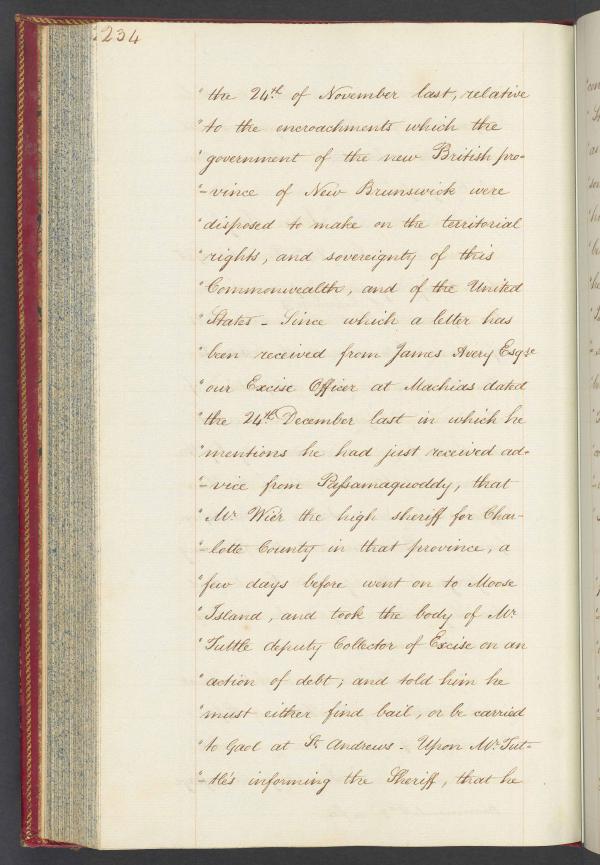 234
" the 24th of November last, relative
" to the encroachments which the
" government of the new British pro-
"-vince of New Brunswick were
" disposed to make on the territorial
" rights, and sovereignty of this
" Commonwealth, and of the United
" States - Since which a letter has
" been received from James Avery Esqre
" our Excise Officer at Machias dated
" the 24th December last in which he
" mentions he had just received ad-
"-vice from Passamaquoddy, that
" Mr Wier the high sheriff for Char-
"-lotte County in that province, a
" few days before went on to Moose
" Island, and took the body of Mr
" Tuttle deputy Collector of Excise on an
" action of debt; and told him he
" must either find bail, or be carried
" to Gaol at St Andrews - Upon Mr Tut-
"-tle's informing the Sheriff, that he